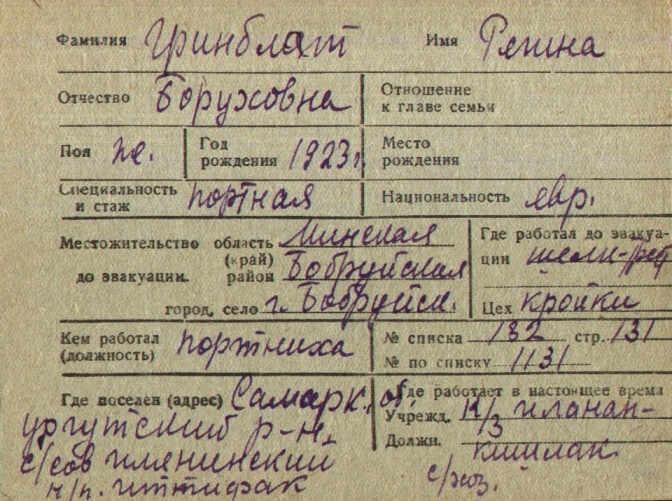 Фамилия Гринблат Имя Регина
Отчество Боруховна Отношение к главе семьи
Пол же. Год рождения 1923 г. Место рождения
Специальность и стаж портная Национальность евр.
Местожительство до эвакуации. область (край) Минская
район Бобруйская
город, село г. Бобруйск.
Где работал до эвакуации
Цех кройки
Кем работал (должность) портниха
№ списка 132 стр. 131
№ по списку 1131
Где поселен (адрес) Самарк. об.
ургутский р-н.
с/сов именинский
н/п. иттифак
Где работает в настоящее время
Учрежд. К/з
Должн. кишлак.
с/хоз.